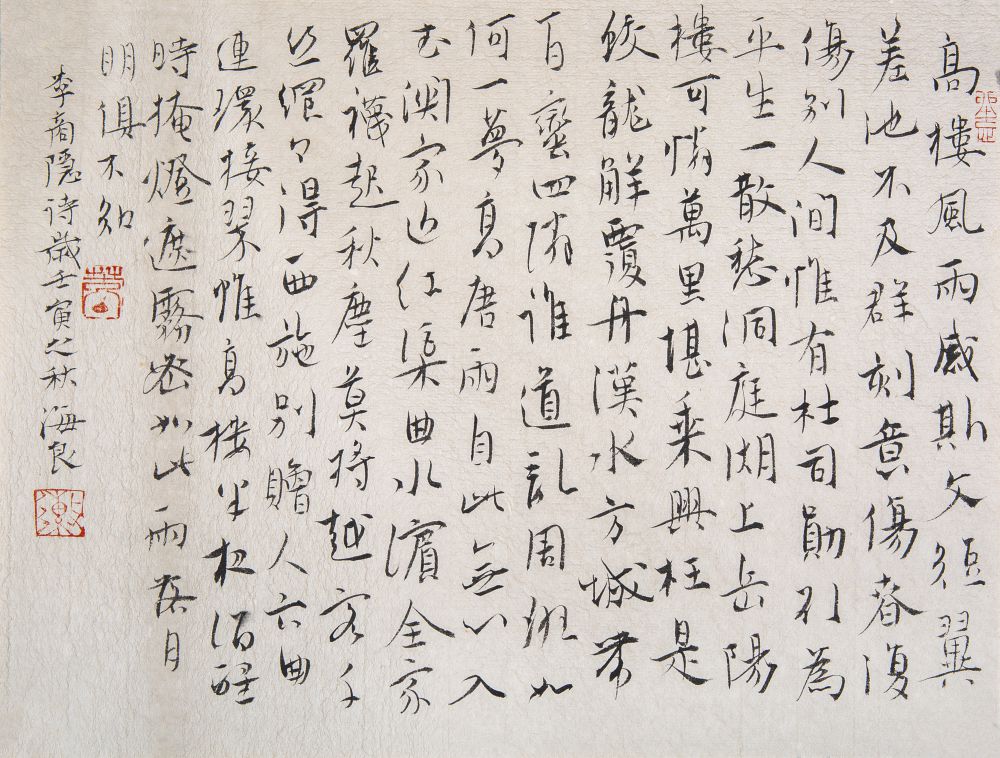 高樓風雨感斯文短翼
差池不及群刻意傷春復
傷別人間惟有杜司勛引為
平生一散愁洞庭湖上岳陽
樓可憐萬里堪乘興枉是
蛟龍解覆舟漢水方城帶
百蠻四鄰誰道亂周班如
何一夢高唐雨自此無心入
武關家近紅渠曲水濱全家
羅襪起秋塵莫將越客千
絲網々得西施別贈人六曲
連環接翠帷高樓半夜酒醒
時掩燈遮霧密如此雨落月
明俱不知
李商隱詩歲壬寅之秋海良